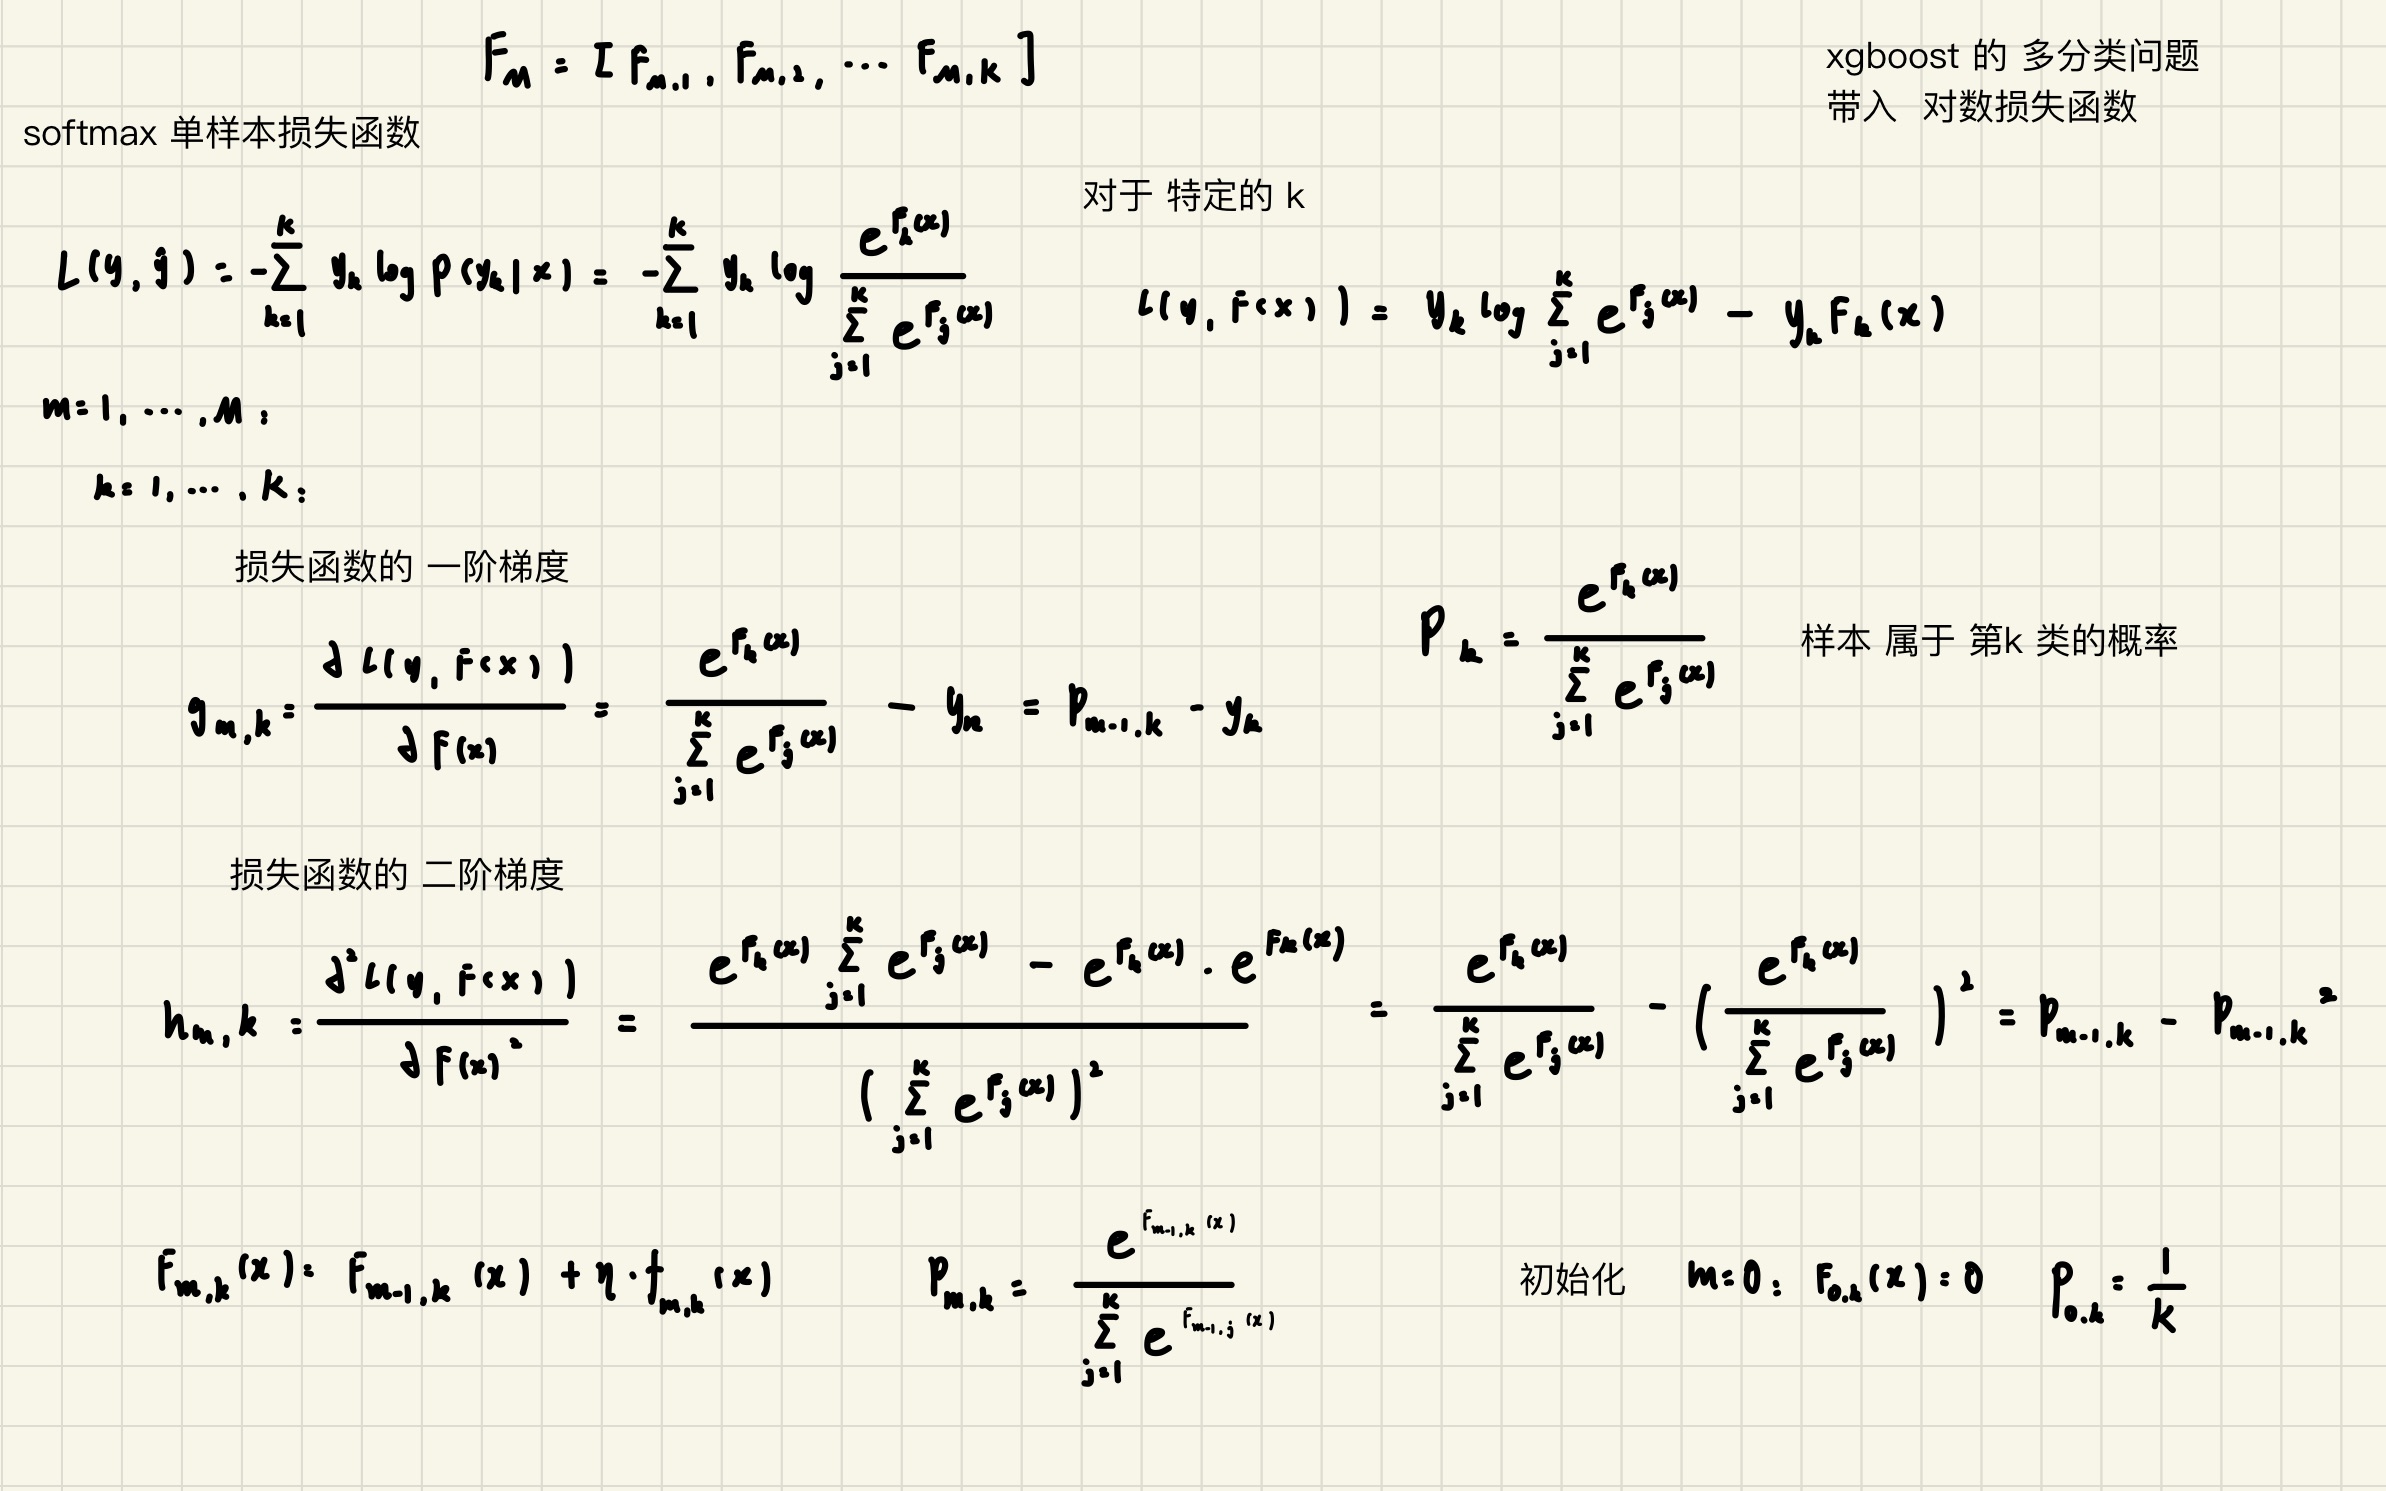 F_M = [ F_{M,1}, F_{M,2}, ⋯ F_{M,K} ]
xgboost 的 多分类问题
带入 对数损失函数
softmax 单样本损失函数
对于 特定的 k
L(y, ŷ) = -∑_{k=1}^{K} y_k log p(y_k|x) = -∑_{k=1}^{K} y_k log e^{F_k(x)} / ∑_{j=1}^{K} e^{F_j(x)}
L(y, F(x)) = y_k log ∑_{j=1}^{K} e^{F_j(x)} - y_k F_k(x)
m=1, ⋯, M:
k=1, ⋯, K:
损失函数的 一阶梯度
g_{m,k} = ∂L(y, F(x)) / ∂F(x) = e^{F_k(x)} / ∑_{j=1}^{K} e^{F_j(x)} - y_k = P_{m-1,k} - y_k
P_k = e^{F_k(x)} / ∑_{j=1}^{K} e^{F_j(x)} 样本 属于 第k 类的概率
损失函数的 二阶梯度
h_{m,k} = ∂²L(y, F(x)) / ∂F(x)² = (e^{F_k(x)} ∑_{j=1}^{K} e^{F_j(x)} - e^{F_k(x)} · e^{F_k(x)}) / (∑_{j=1}^{K} e^{F_j(x)})² = e^{F_k(x)} / ∑_{j=1}^{K} e^{F_j(x)} - (e^{F_k(x)} / ∑_{j=1}^{K} e^{F_j(x)})² = P_{m-1,k} - P_{m-1,k}²
F_{m,k}(x) = F_{m-1,k}(x) + η · f_{m,k}(x)
P_{m,k} = e^{F_{m-1,k}(x)} / ∑_{j=1}^{K} e^{F_{m-1,j}(x)}
初始化 m=0: F_{0,k}(x) = 0 P_{0,k} = 1/K